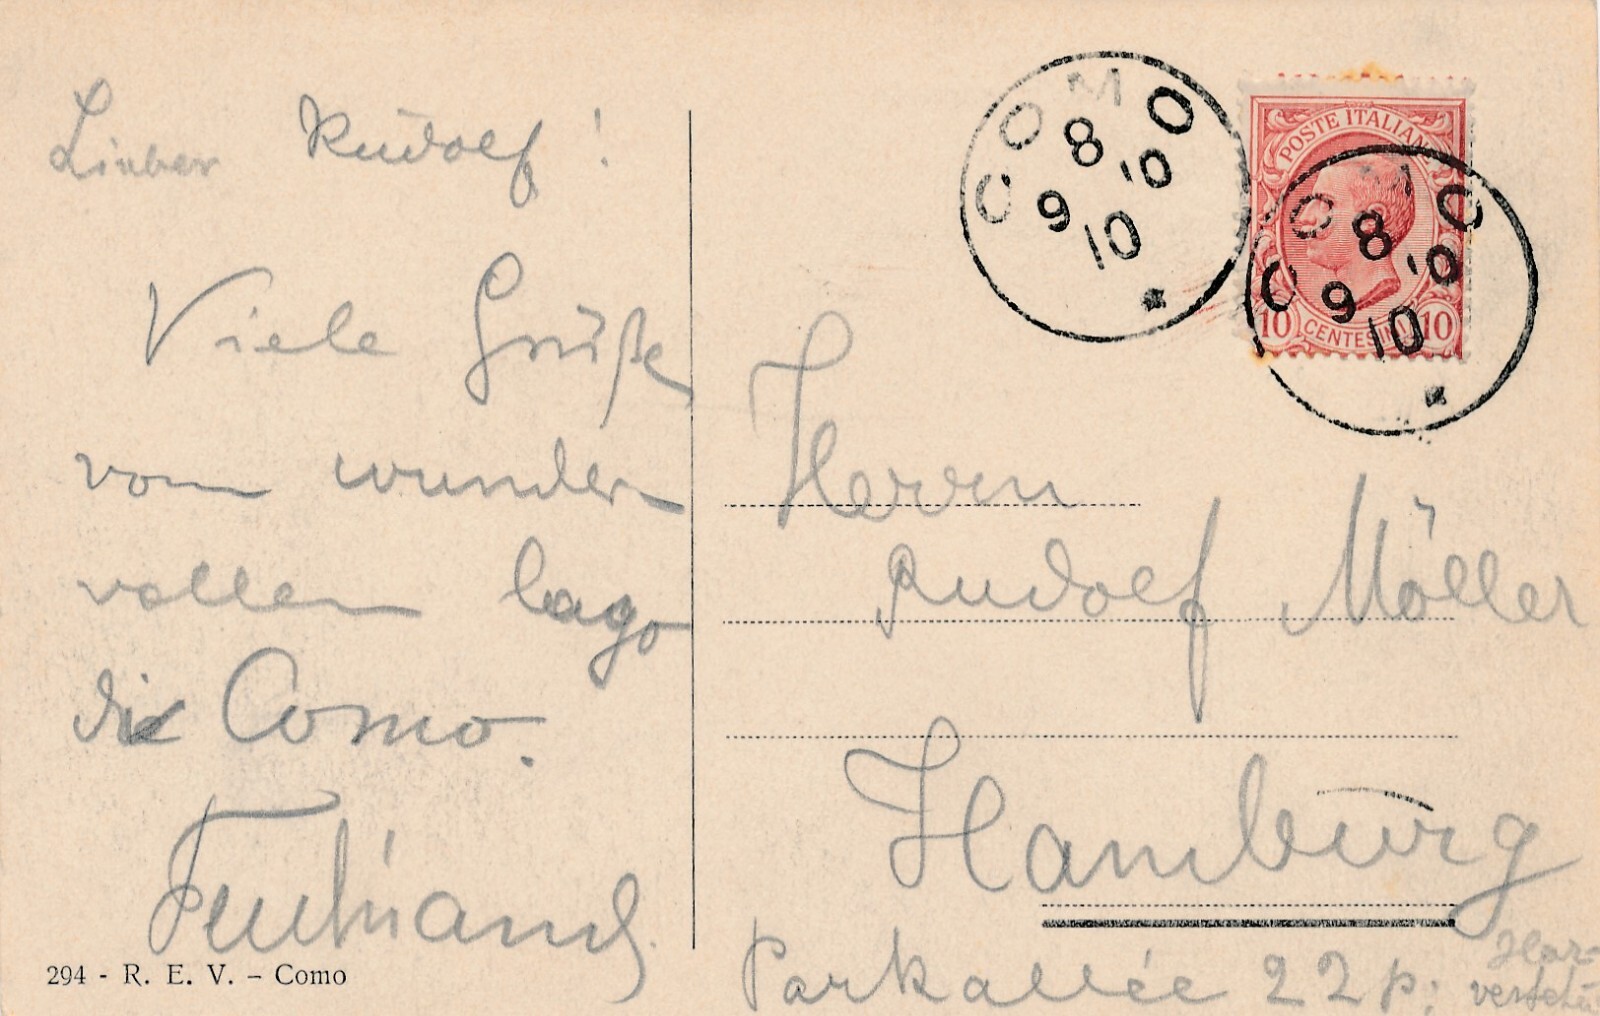 Lieber Rudolf!
Viele Grüße
vom wunder
vollen lago
di Como.
Ferdinand.
294 - R. E. V. - Como
COMO
8
9 10
10
POSTE ITALIANE
COMO
8
9 10
10
10 CENTESIMI 10
Herrn
Rudolf Möller
Hamburg
Parkallée 22 p.
Har-
vestehu